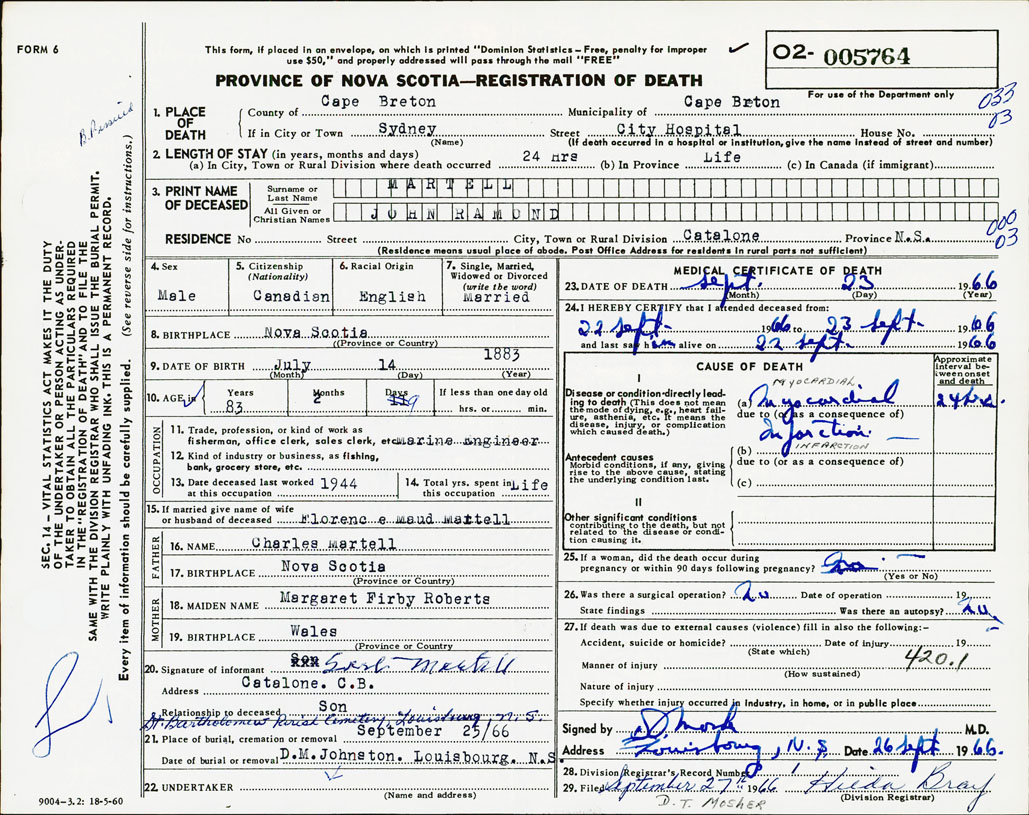 FORM 6
This form, if placed in an envelope, on which is printed "Dominion Statistics – Free, penalty for improper
use $50," and properly addressed will pass through the mail "FREE"
PROVINCE OF NOVA SCOTIA—REGISTRATION OF DEATH
O2- 005764
For use of the Department only
033
03
1. PLACE OF DEATH
County of Cape Breton Municipality of Cape Breton
If in City or Town Sydney Street City Hospital House No.
(Name) (If death occurred in a hospital or institution, give the name instead of street and number)
2. LENGTH OF STAY (in years, months and days)
(a) In City, Town or Rural Division where death occurred 24 hrs (b) In Province Life (c) In Canada (if immigrant)
3. PRINT NAME OF DECEASED
Surname or Last Name MARTELL
All Given or Christian Names JOHN RAMOND
000
03
RESIDENCE No Street City, Town or Rural Division Catalone Province N.S.
(Residence means usual place of abode. Post Office Address for residents in rural parts not sufficient)
4. Sex Male
5. Citizenship (Nationality) Canadian
6. Racial Origin English
7. Single, Married, Widowed or Divorced (write the word) Married
8. BIRTHPLACE Nova Scotia
(Province or Country)
9. DATE OF BIRTH July 14 1883
(Month) (Day) (Year)
10. AGE in Years 83 Months 2 Days 9 If less than one day old
hrs. or min.
OCCUPATION
11. Trade, profession, or kind of work as
fisherman, office clerk, sales clerk, etc. Marine Engineer
12. Kind of industry or business, as fishing,
bank, grocery store, etc.
13. Date deceased last worked at this occupation 1944
14. Total yrs. spent in this occupation Life
15. If married give name of wife
or husband of deceased Florenc e Maud Martell
FATHER
16. NAME Charles Martell
17. BIRTHPLACE Nova Scotia
(Province or Country)
MOTHER
18. MAIDEN NAME Margaret Firby Roberts
19. BIRTHPLACE Wales
(Province or Country)
Son
20. Signature of informant Martell
Address Catalone. C.B.
Relationship to deceased Son
St. Bartholomew Parish Cemetery, Louisbourg, N.S.
21. Place of burial, cremation or removal September 25/66
Date of burial or removal D.M.Johnston. Louisbourg. N.S.
22. UNDERTAKER
(Name and address)
9004–3.2: 18-5-60
MEDICAL CERTIFICATE OF DEATH
23. DATE OF DEATH Sept. 23 1966
(Month) (Day) (Year)
24. I HEREBY CERTIFY that I attended deceased from:
22 Sept. 1966 to 23 Sept. 1966
and last saw him alive on 22 Sept. 1966
CAUSE OF DEATH
Approximate interval between onset and death
I
MYOCARDIAL
Disease or condition directly leading to death (This does not mean the mode of dying, e.g., heart failure, asthenia, etc. It means the disease, injury, or complication which caused death.)
(a) Myocardial 24 hrs.
due to (or as a consequence of)
Infarction
(b) INFARCTION
Antecedent causes
Morbid conditions, if any, giving rise to the above cause, stating the underlying condition last.
due to (or as a consequence of)
(c)
II
Other significant conditions
contributing to the death, but not related to the disease or condition causing it.
25. If a woman, did the death occur during
pregnancy or within 90 days following pregnancy?
(Yes or No)
26. Was there a surgical operation? No Date of operation 19
State findings Was there an autopsy? No
27. If death was due to external causes (violence) fill in also the following:–
Accident, suicide or homicide? Date of injury 19
(State which)
420.1
Manner of injury
(How sustained)
Nature of injury
Specify whether injury occurred in Industry, in home, or in public place
Signed by M.D.
Address Louisbourg, N.S. Date 26 Sept 1966.
28. Division Registrar's Record Number
29. Filed September 27th 1966 Hilda Bray
D. T. MOSHER (Division Registrar)
SEC. 14 – VITAL STATISTICS ACT MAKES IT THE DUTY
OF THE UNDERTAKER OR PERSON ACTING AS UNDER-
TAKER TO OBTAIN ALL THE PARTICULARS REQUIRED
IN THE "REGISTRATION OF DEATH" AND TO FILE THE
SAME WITH THE DIVISION REGISTRAR WHO SHALL ISSUE THE BURIAL PERMIT.
WRITE PLAINLY WITH UNFADING INK. THIS IS A PERMANENT RECORD.
Every item of information should be carefully supplied. (See reverse side for instructions.)